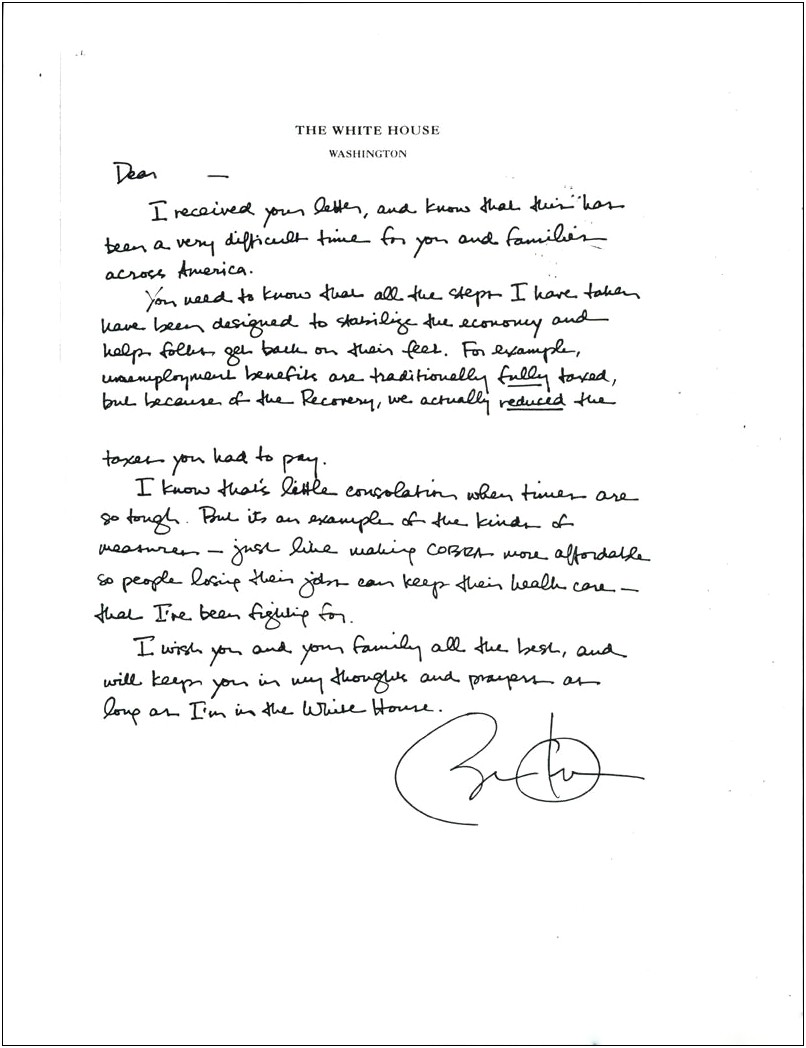 THE WHITE HOUSE
WASHINGTON
Dear —
I received your letter, and know that this has
been a very difficult time for you and families
across America.
You need to know that all the steps I have taken
have been designed to stabilize the economy and
help folks get back on their feet. For example,
unemployment benefits are traditionally fully taxed,
but because of the Recovery, we actually reduced the
taxes you had to pay.
I know that's little consolation when times are
so tough. But its an example of the kinds of
measures — just like making COBRA more affordable
so people losing their jobs can keep their health care —
that I've been fighting for.
I wish you and your family all the best, and
will keep you in my thoughts and prayers as
long as I'm in the White House.